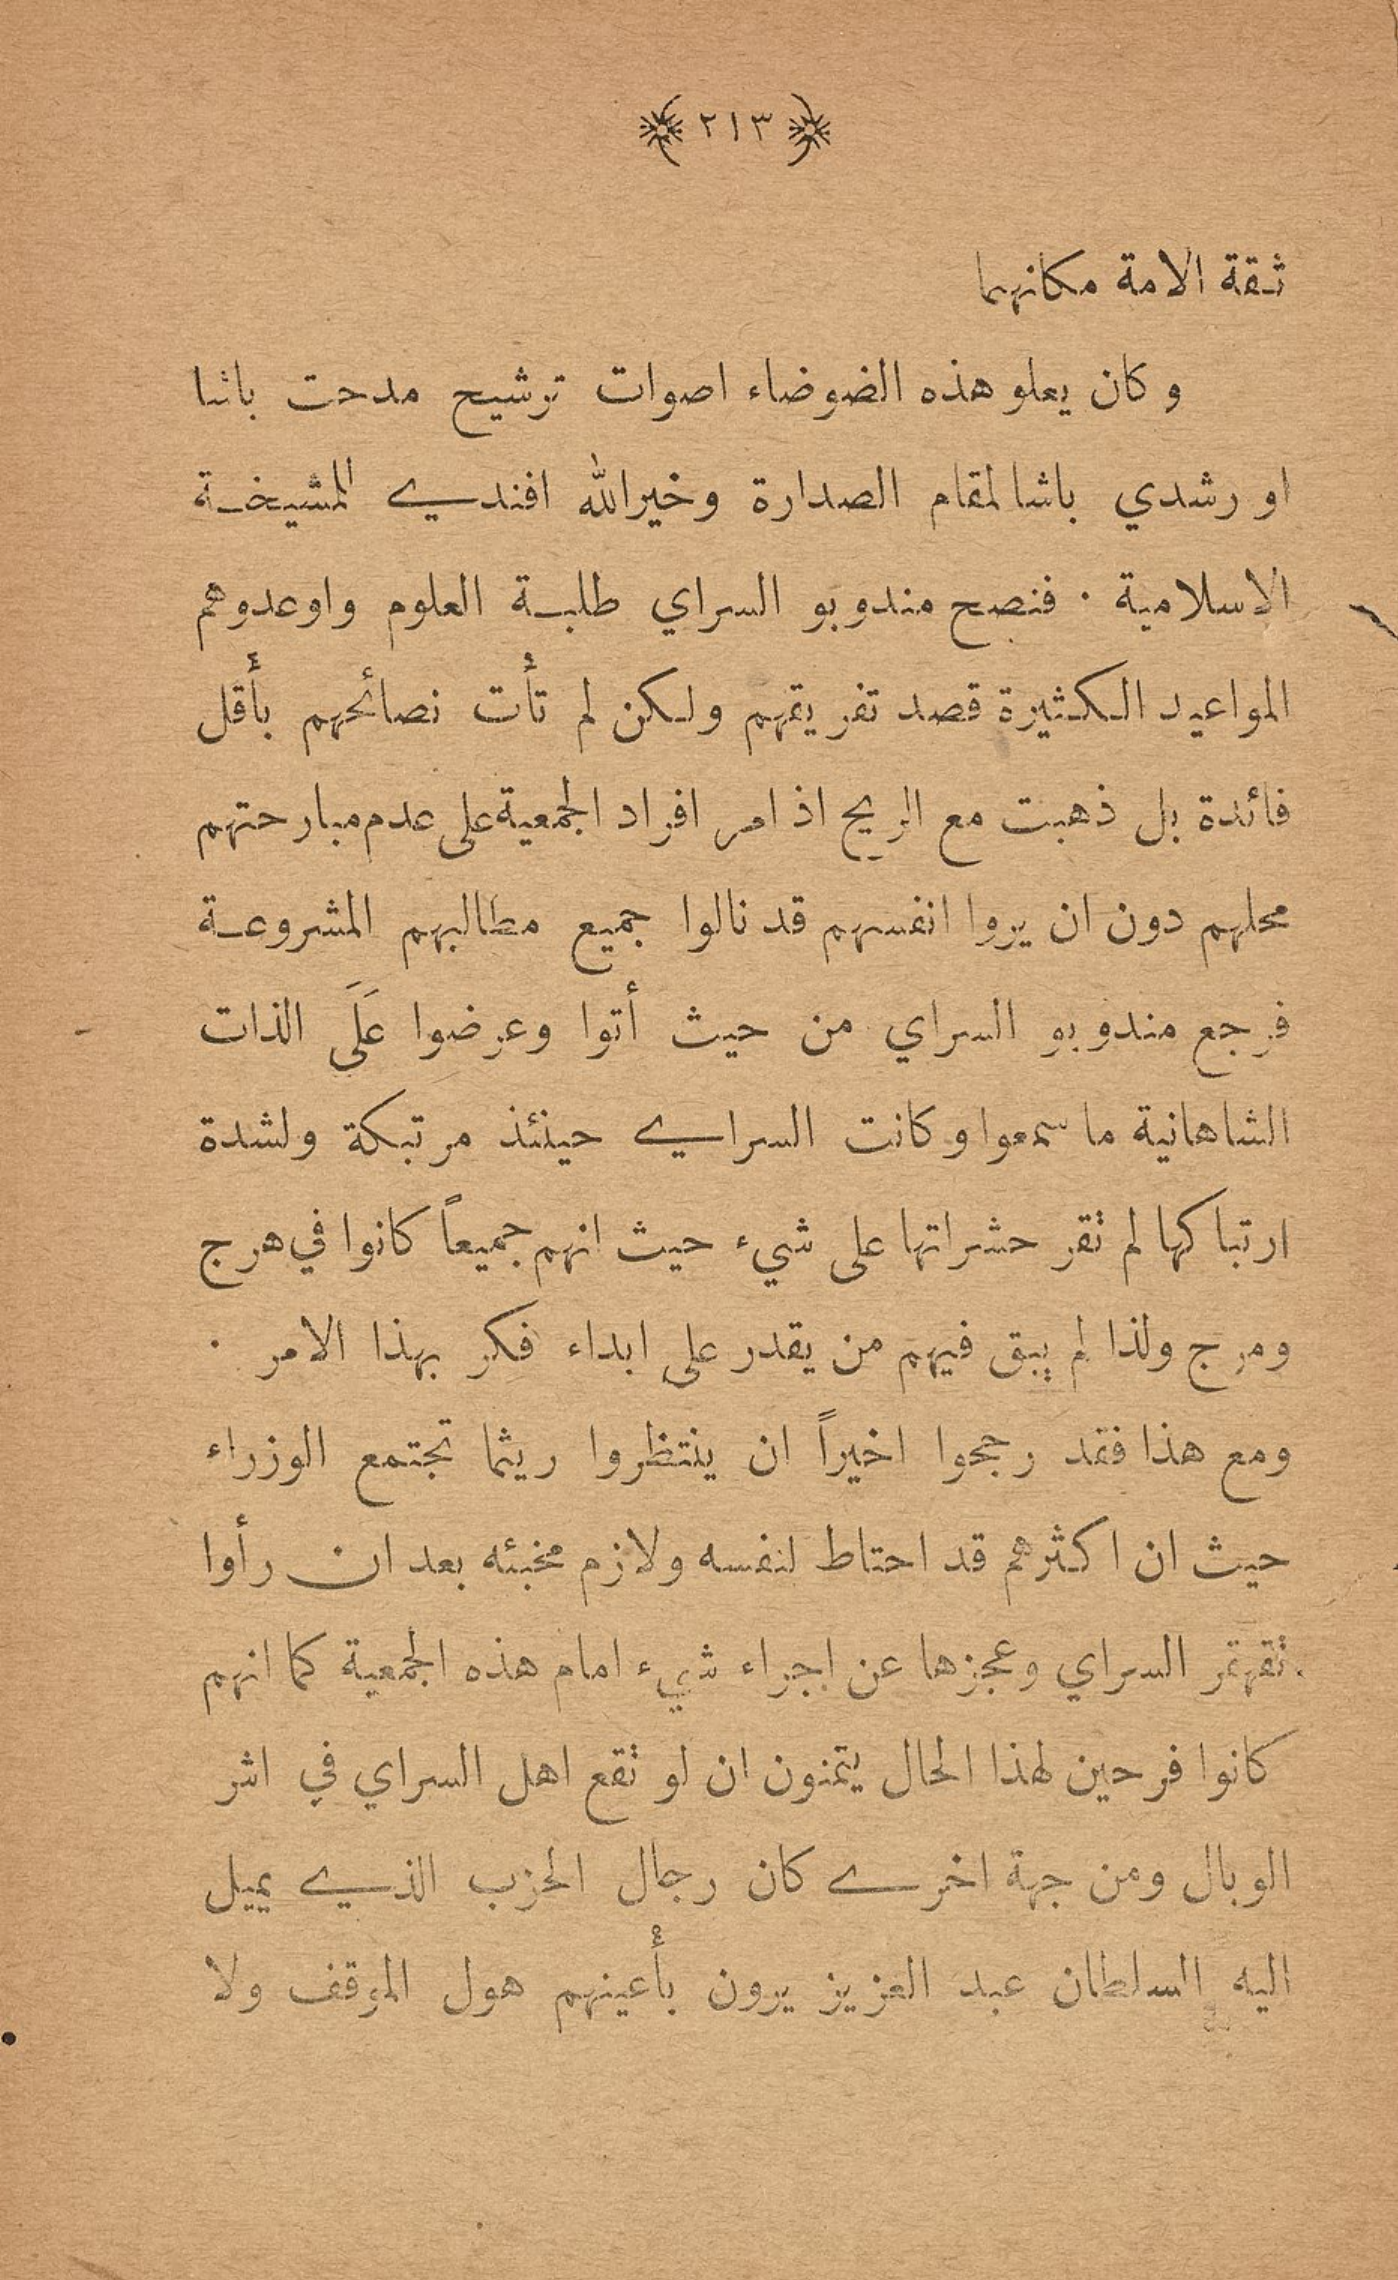 ﴿ ٢١٣ ﴾
ثقة الامة مكانهما
وكان يعلو هذه الضوضاء اصوات ترشيح مدحت باشا
او رشدي باشا لمقام الصدارة وخيرالله افندي للمشيخة
الاسلامية ٠ فنصح مندوبو السراي طلبة العلوم واوعدوهم
المواعيد الكثيرة قصد تفريقهم ولكن لم تأت نصائحهم بأقل
فائدة بل ذهبت مع الريح اذ امر افراد الجمعية على عدم مبارحتهم
محلهم دون ان يروا انفسهم قد نالوا جميع مطالبهم المشروعة
فرجع مندوبو السراي من حيث أتوا وعرضوا عَلَى الذات
الشاهانية ما سمعوا وكانت السراي حينئذ مرتبكة ولشدة
ارتباكها لم تقر حشراتها على شيء حيث انهم جميعاً كانوا في هرج
ومرج ولذا لم يبق فيهم من يقدر على ابداء فكر بهذا الامر ٠
ومع هذا فقد رجحوا اخيراً ان ينتظروا ريثما تجتمع الوزراء
حيث ان اكثرهم قد احتاط لنفسه ولازم مخبئه بعد ان رأوا
تقهقر السراي وعجزها عن اجراء شيء امام هذه الجمعية كما انهم
كانوا فرحين لهذا الحال يتمنون ان لو تقع اهل السراي في اشر
الوبال ومن جهة اخرى كان رجال الحزب الذي يميل
اليه السلطان عبد العزيز يرون بأعينهم هول الموقف ولا